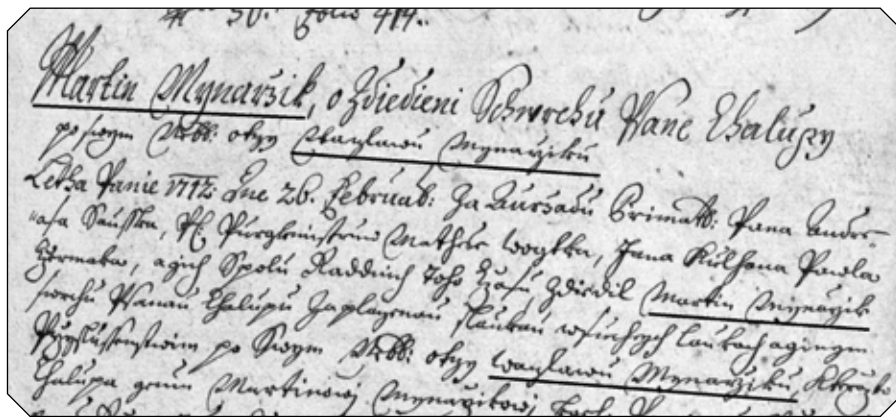 50. Folio 414.
Martin Mynarzik, o Zdiedieni Schwrchu Psane Chalupy
po swym Nebb: otczy Waczlawu Mynarziku
Letha Panie 1712: Dne 26. Februarij: Za Aurzadu Primatt: Pana Andre-
asa Sausska, Pft: Purgkmistruw Mathse Wogtka, Jana Kulhana Pawla
a gich Spolu Raddnich Toho Czasu, Zdiedil Martin Mynarzik
swrchu Psanau Chalupu Zaplaczenau s laukau w suchych laukach a ginym
Przyslussenstwim po Swym Nebb: otczy Waczlawu Mynarziku, Kteražto
Chalupa gemu Martinowi Mynarzikowi,